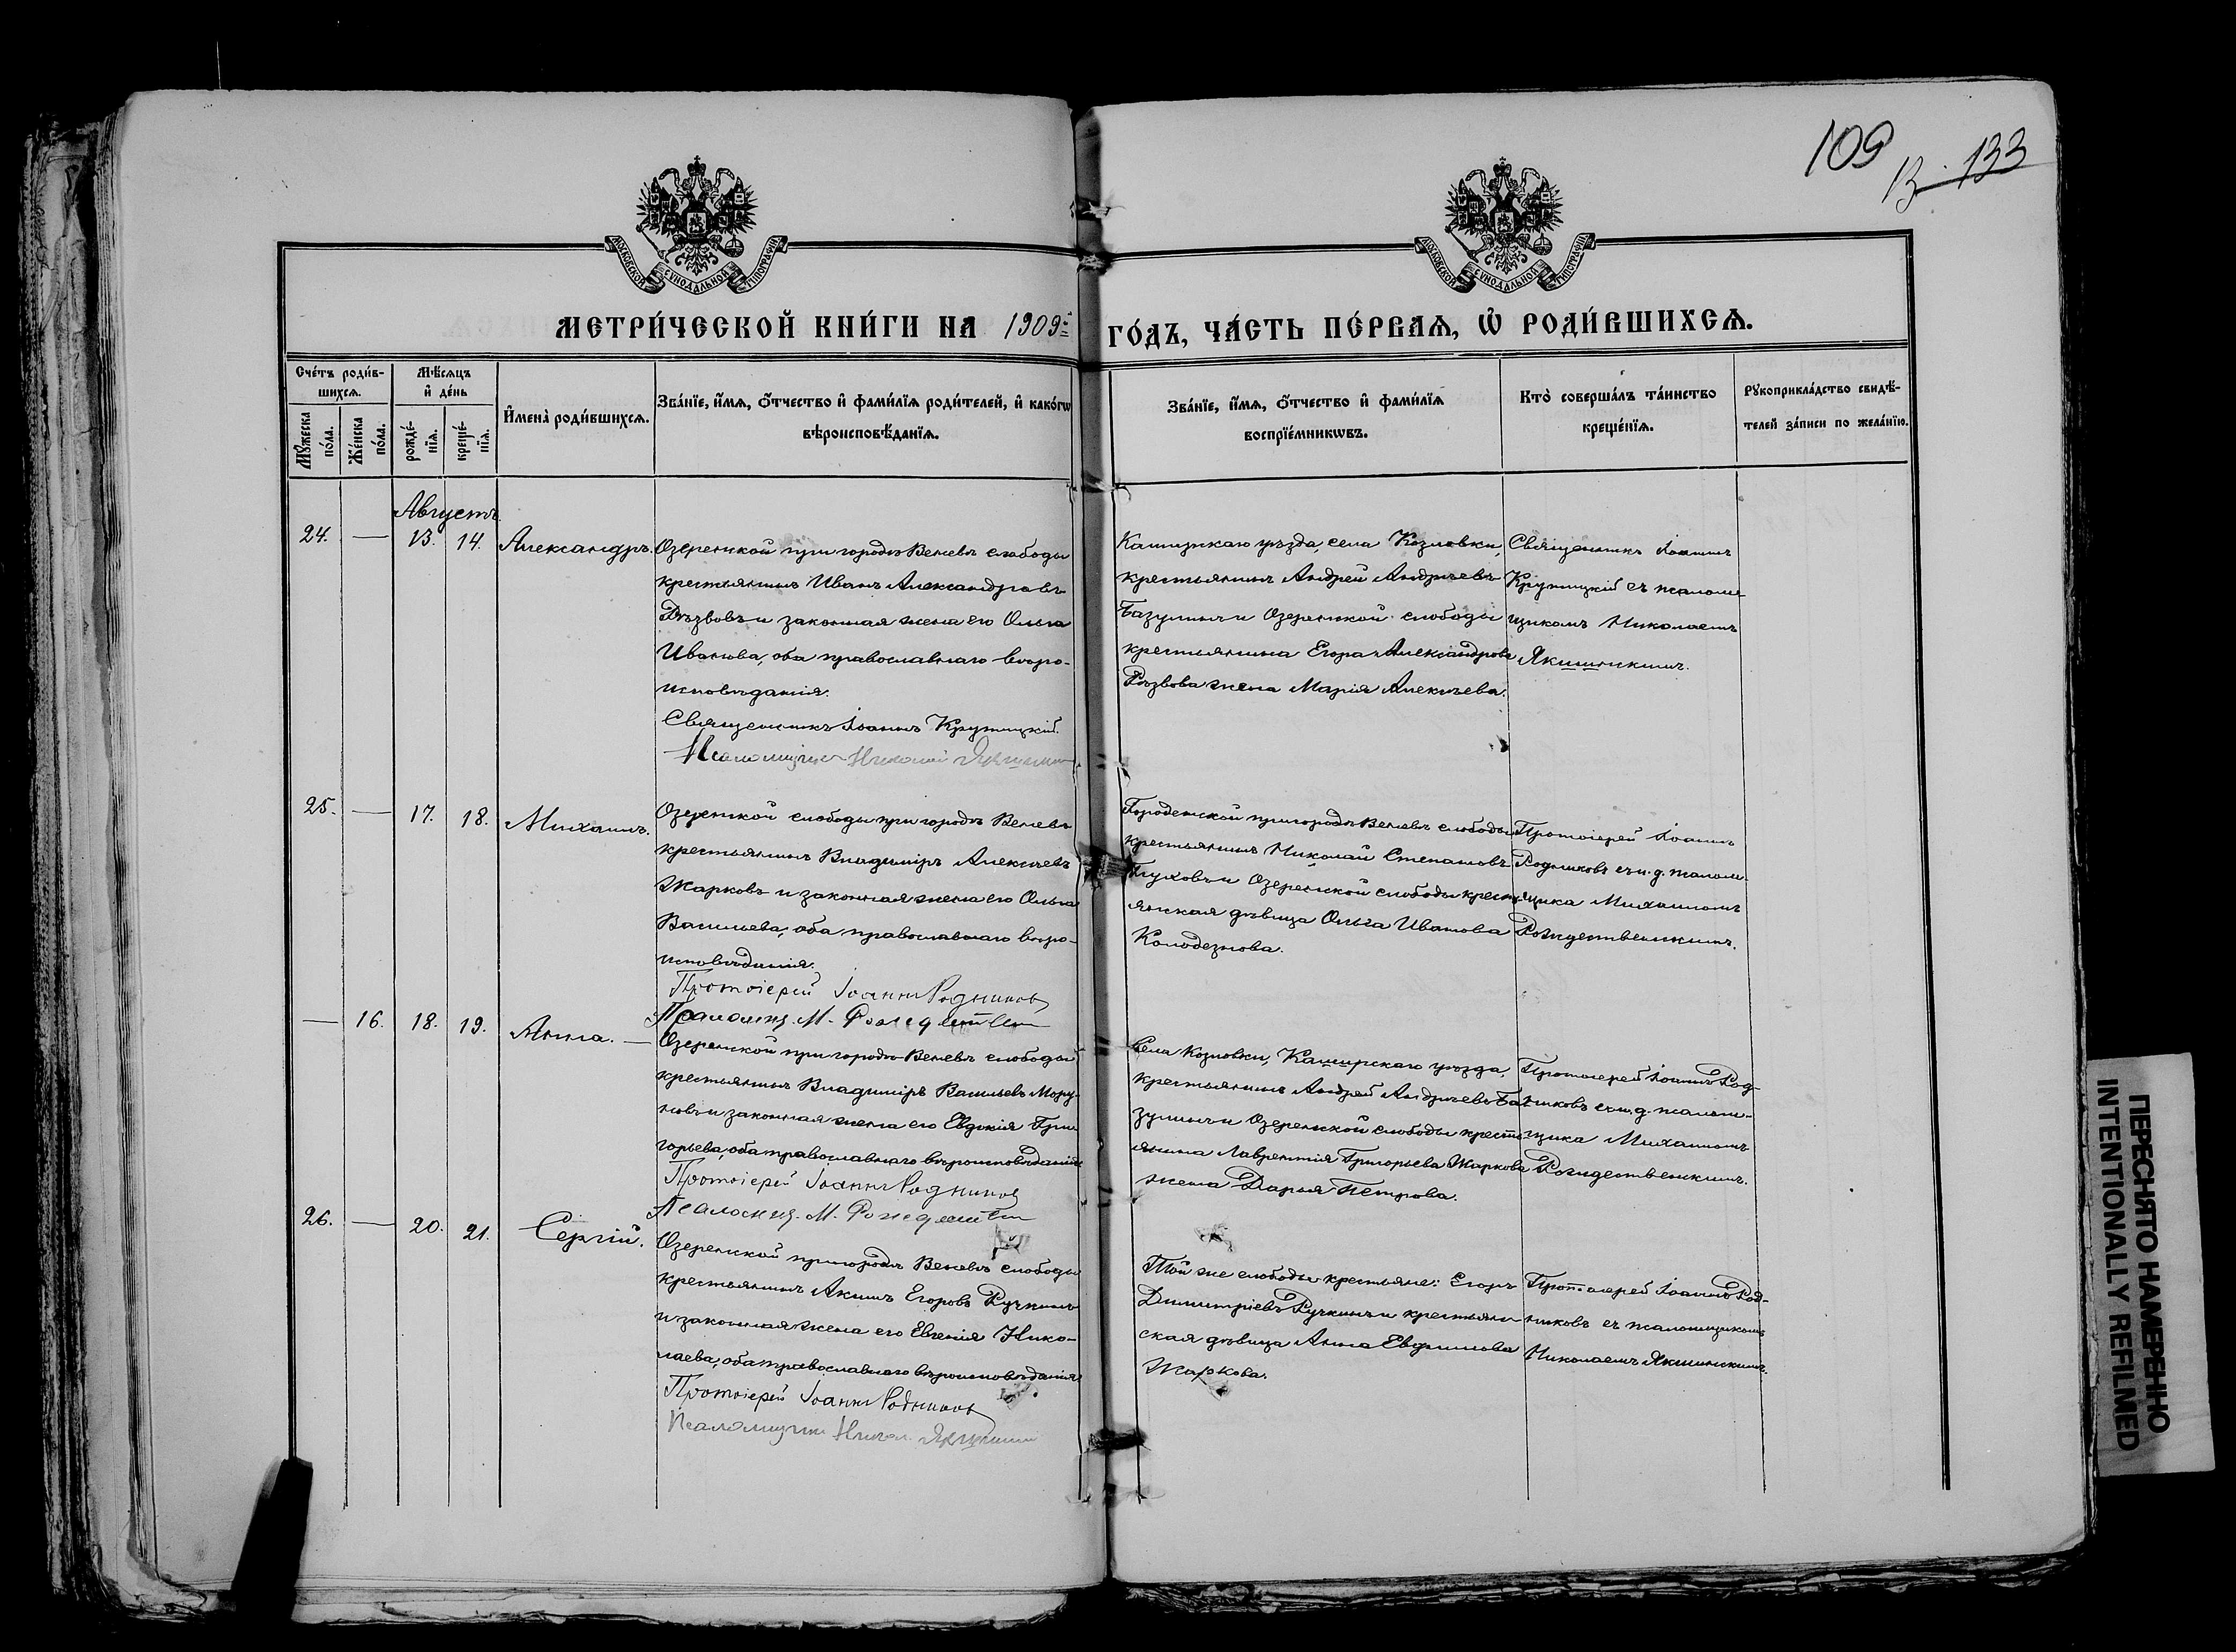 109
В. 133
МОСКОВСКОЙ СѴНОДАЛЬНОЙ ТИПОГРАФІИ
МОСКОВСКОЙ СѴНОДАЛЬНОЙ ТИПОГРАФІИ
МЕТРИ́ЧЕСКОЙ КНИ́ГИ НА 1909й
ГО́ДЪ, ЧА́СТЬ ПЕ́РВАѦ, Ѽ РОДИ́ВШИХСѦ.
Сче́тъ роди́в-
шихсѧ.
Мꙋ́жеска по́ла.
Же́нска по́ла.
Мѣ́сѧцъ
и҆ де́нь
рожде́-
нїѧ.
креще́-
нїѧ.
И҆мена̀ роди́вшихсѧ.
Зва́нїе, и҆́мѧ, ѻ҆́тчество и҆ фами́лїѧ роди́телей, и҆ како́гѡ
вѣроисповѣ́данїѧ.
Зва́нїе, и҆́мѧ, ѻ҆́тчество и҆ фами́лїѧ
воспрїе́мникѡвъ.
Кто̀ соверша́лъ та́инство
креще́нїѧ.
Рꙋкоприкла́дство свидѣ́-
телей за́писи по жела́нїю.
Августъ.
24. — 13. 14. Александръ.
Озеренской при городѣ Веневѣ слободы
крестьянинъ Иванъ Александровъ
Рѣзвовъ и законная жена его Ольга
Иванова, оба православнаго вѣро-
исповѣданія.
Священникъ Іоаннъ Крутицкій.
Псаломщикъ Николай Якшинскій
Каширскаго уѣзда, села Козловки,
крестьянинъ Андрей Андреевъ
Базулинъ и Озеренской слободы
крестьянина Егора Александрова
Рѣзвова жена Марія Алексѣева.
Священникъ Іоаннъ
Крутицкій съ псаломщи-
цикомъ Николаемъ
Якшинскимъ.
25. — 17. 18. Михаилъ.
Озеренской слободы при городѣ Веневѣ
крестьянинъ Владиміръ Алексѣевъ
Жарковъ и законная жена его Ольга
Васильева, оба православнаго вѣро-
исповѣданія.
Протоіерей Іоаннъ Родниковъ
Псаломщ. М. Рождествен
Городенской при городѣ Веневѣ слободы
крестьянинъ Николай Степановъ
Глуховъ и Озеренской слободы кресть-
янская дѣвица Ольга Иванова
Колодезнова.
Протоіерей Іоаннъ
Родниковъ съ и. д. псалом-
щика Михаиломъ
Рождественскимъ.
— 16. 18. 19. Анна. —
Озеренской при городѣ Веневѣ слободы
крестьянинъ Владиміръ Васильевъ Мору-
новъ и законная жена его Евдокія Гри-
горьева, оба православнаго вѣроисповѣданія
Протоіерей Іоаннъ Родниковъ
Псаломщ. М. Рождествен
Села Козловки, Каширскаго уѣзда,
крестьянинъ Андрей Андреевъ Ба-
зулинъ и Озеренской слободы кресть-
янина Лаврентія Григорьева Жаркова
жена Дарья Петрова.
Протоіерей Іоаннъ Род-
никовъ съ и. д. псалом-
щика Михаиломъ
Рождественскимъ.
26. — 20. 21. Сергій.
Озеренской при городѣ Веневѣ слободы
крестьянинъ Акимъ Егоровъ Ручкинъ
и законная жена его Евгенія Нико-
лаева, оба православнаго вѣроисповѣданія
Протоіерей Іоаннъ Родниковъ
Псаломщикъ Никол. Якшинскій
Той же слободы крестьяне: Егоръ
Димитріевъ Ручкинъ и крестьян-
ская дѣвица Анна Евфимова
Жаркова.
Протоіерей Іоаннъ Род-
никовъ съ псаломщикомъ
Николаемъ Якшинскимъ.
ПЕРЕСНЯТО НАМЕРЕННО
INTENTIONALLY REFILMED